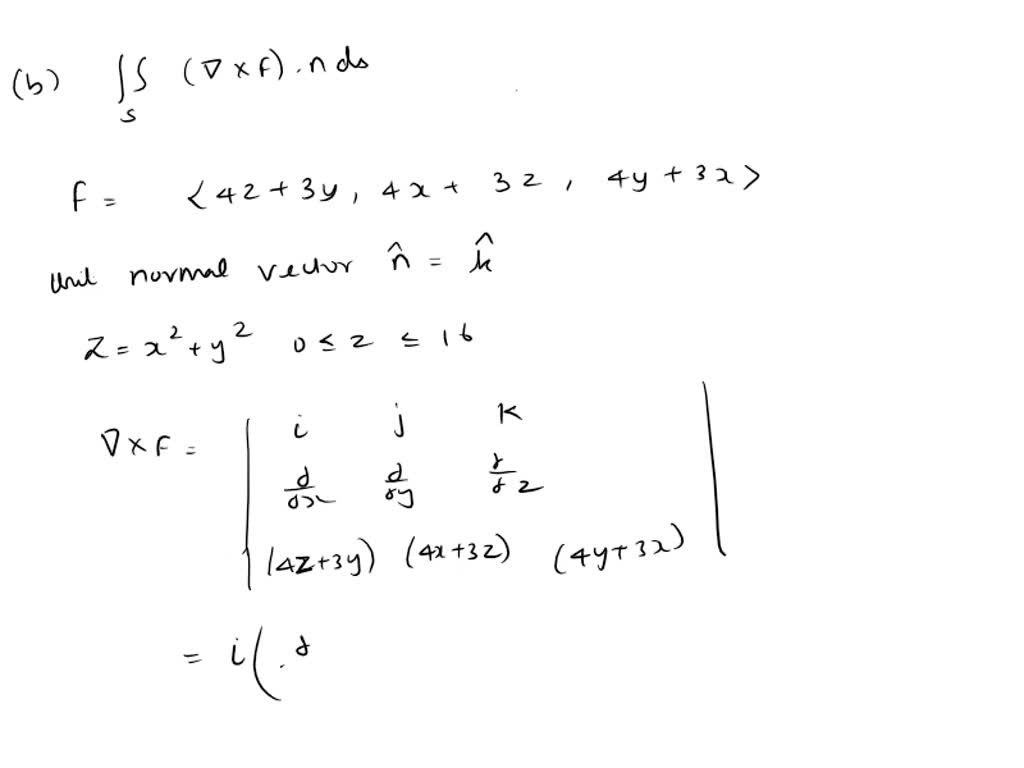 (b) ∬_S (∇ × F) . n ds
F = ⟨4z + 3y, 4x + 3z, 4y + 3x⟩
Unit normal vector n̂ = k̂
Z = x² + y² 0 ≤ z ≤ 16
∇ × F = | i j k
∂/∂x ∂/∂y ∂/∂z
(4z+3y) (4x+3z) (4y+3x) |
= i( . ∂